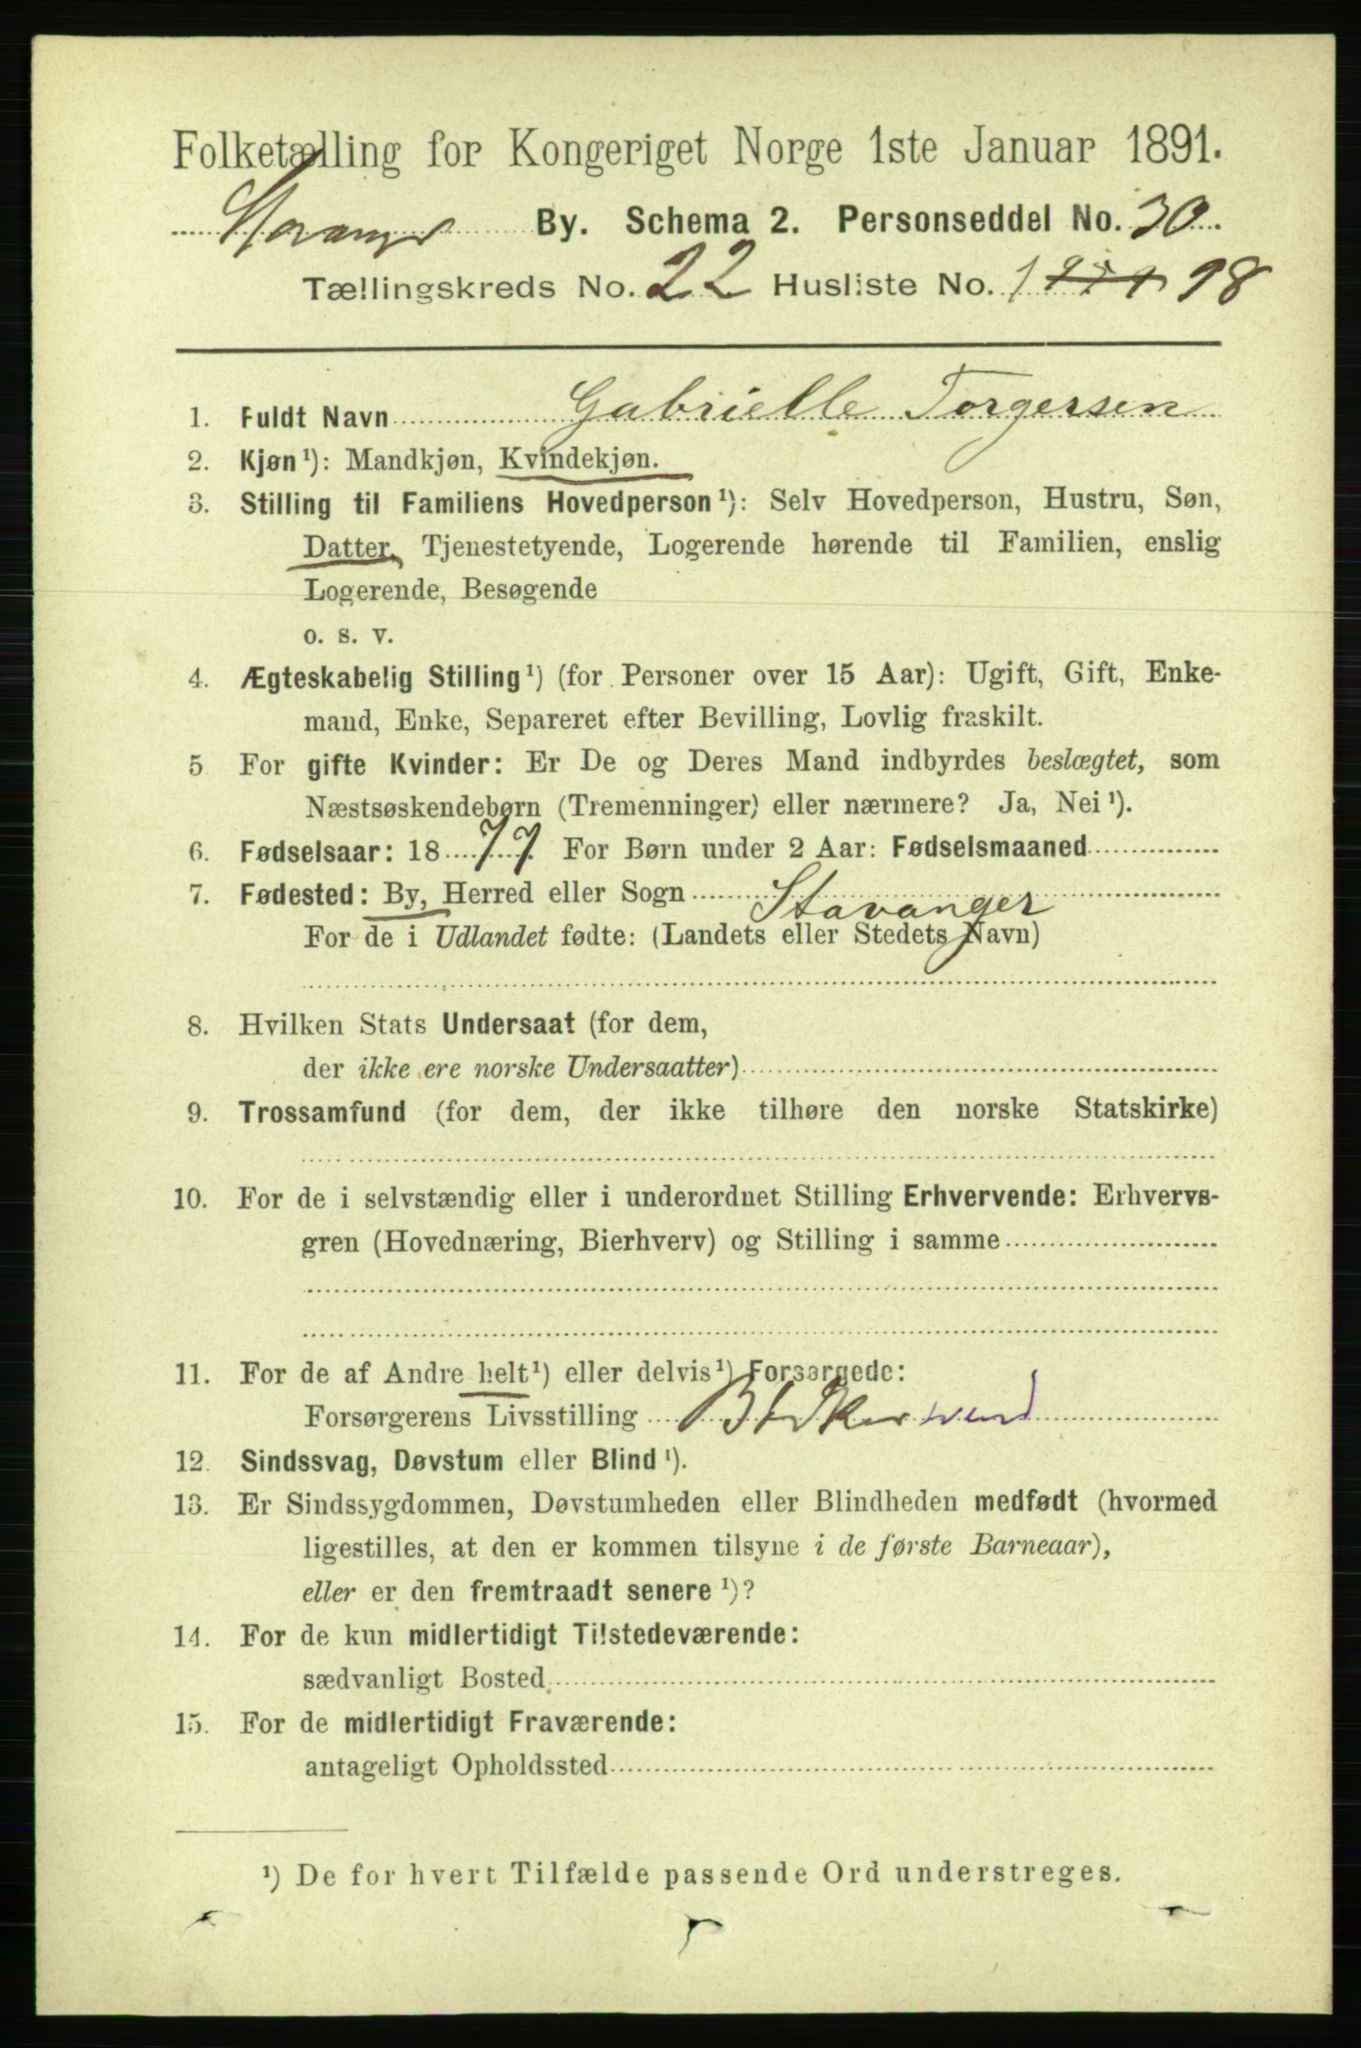 Folketælling for Kongeriget Norge 1ste Januar 1891.
Stavanger By. Schema 2. Personseddel No. 30
Tællingskreds No. 22 Husliste No. 18
1. Fuldt Navn Gabrielle Torgersen
2. Kjøn ¹): Mandkjøn, Kvindekjøn.
3. Stilling til Familiens Hovedperson ¹): Selv Hovedperson, Hustru, Søn,
Datter, Tjenestetyende, Logerende hørende til Familien, enslig
Logerende, Besøgende
o. s. v.
4. Ægteskabelig Stilling ¹) (for Personer over 15 Aar): Ugift, Gift, Enke-
mand, Enke, Separeret efter Bevilling, Lovlig fraskilt.
5 For gifte Kvinder: Er De og Deres Mand indbyrdes beslægtet, som
Næstsøskendebørn (Tremenninger) eller nærmere? Ja, Nei ¹).
6. Fødselsaar: 1877. For Børn under 2 Aar: Fødselsmaaned
7. Fødested: By, Herred eller Sogn Stavanger
For de i Udlandet fødte: (Landets eller Stedets Navn)
8. Hvilken Stats Undersaat (for dem,
der ikke ere norske Undersaatter)
9. Trossamfund (for dem, der ikke tilhøre den norske Statskirke)
10. For de i selvstændig eller i underordnet Stilling Erhvervende: Erhvervs-
gren (Hovednæring, Bierhverv) og Stilling i samme
11. For de af Andre helt ¹) eller delvis ¹) Forsørgede:
Forsørgerens Livsstilling
12. Sindssvag, Døvstum eller Blind ¹).
13. Er Sindssygdommen, Døvstumheden eller Blindheden medfødt (hvormed
ligestilles, at den er kommen tilsyne i de første Barneaar),
eller er den fremtraadt senere ¹)?
14. For de kun midlertidigt Tilstedeværende:
sædvanligt Bosted
15. For de midlertidigt Fraværende:
antageligt Opholdssted
¹) De for hvert Tilfælde passende Ord understreges.